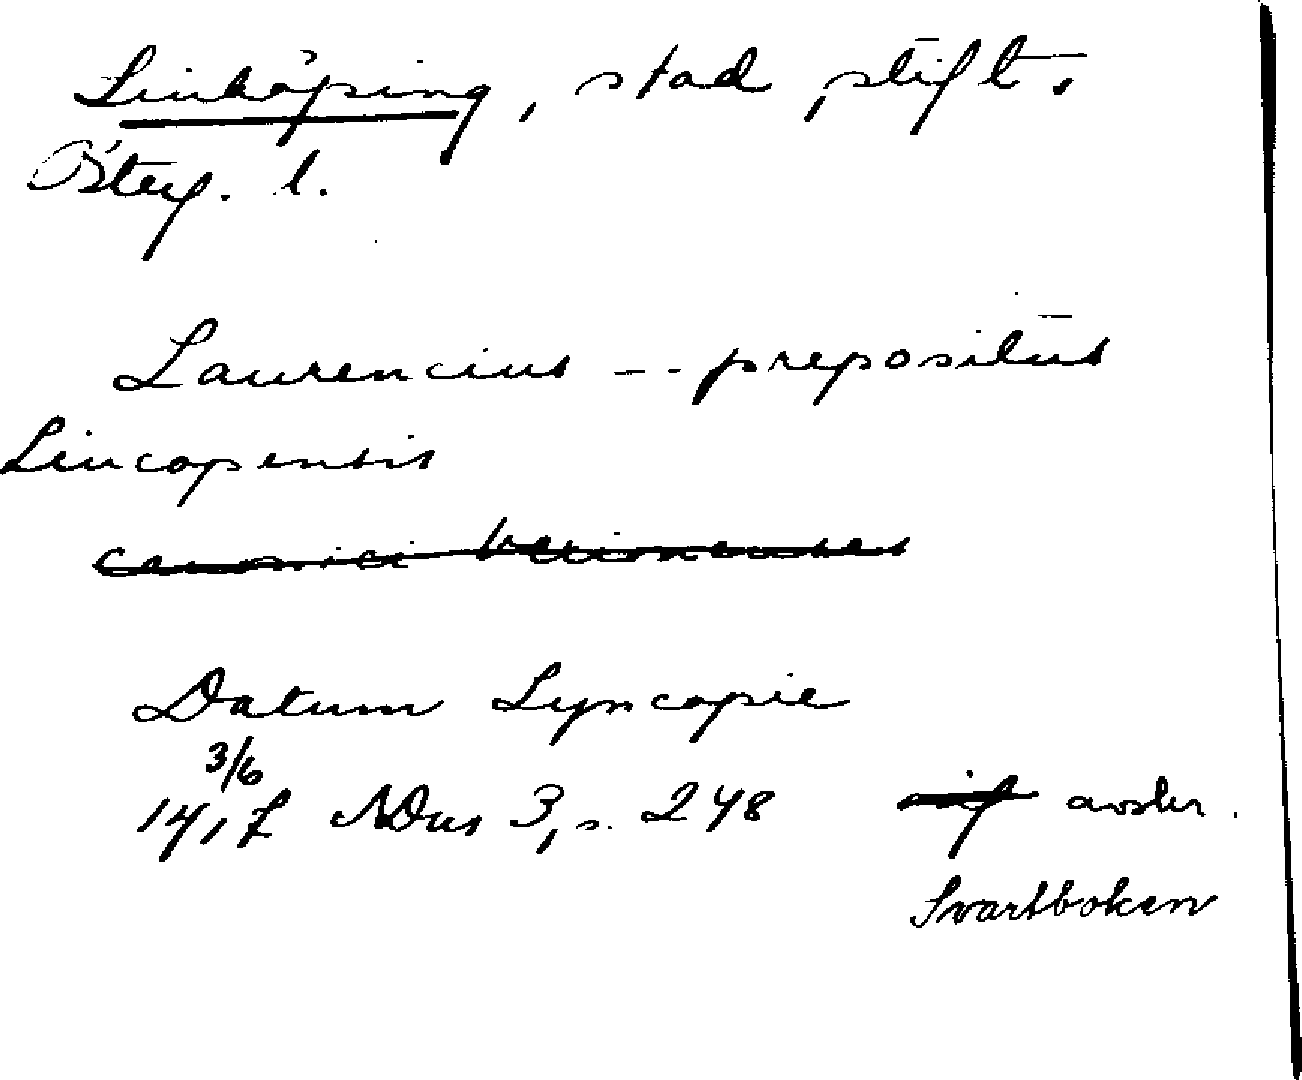 Linköping, stad, stift.
Österg. l.
Laurencius -- prepositus
Lincopensis
Datum Lyncopie
3/6
1417 NDus 3, s. 248 avskr.
Svartboken